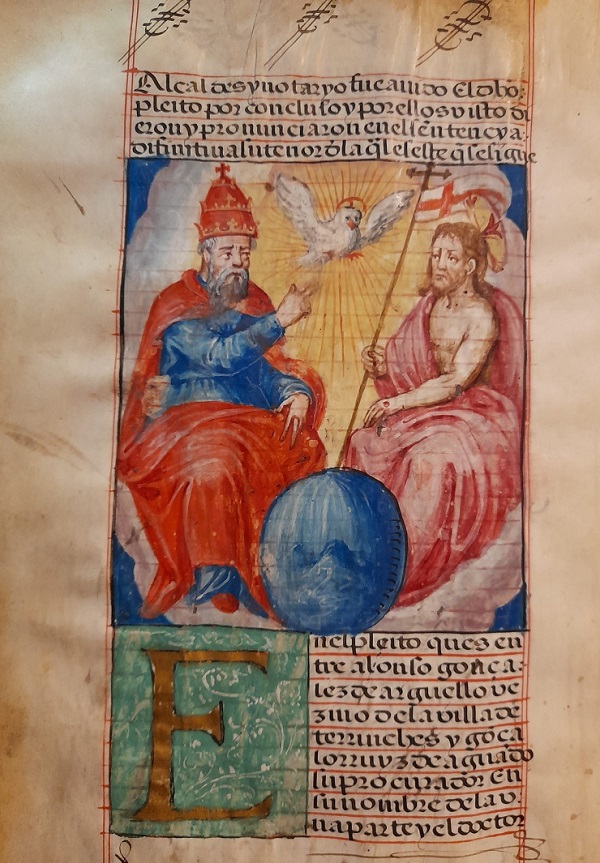 Alcaldes y notaryo fue auido El dbo
pleito por concluso y por ellos visto di
eron y pronunciaron en el sentencya
difinitiua su tenor dla ql es este q se sigue
E
nel pleito que es en
tre alonso gonca
lez de arguello ve
zino de la villa de
terrinches y goca
lo rruyz de aguado
su procurador En
su nombre de la v
na parte y el doctor